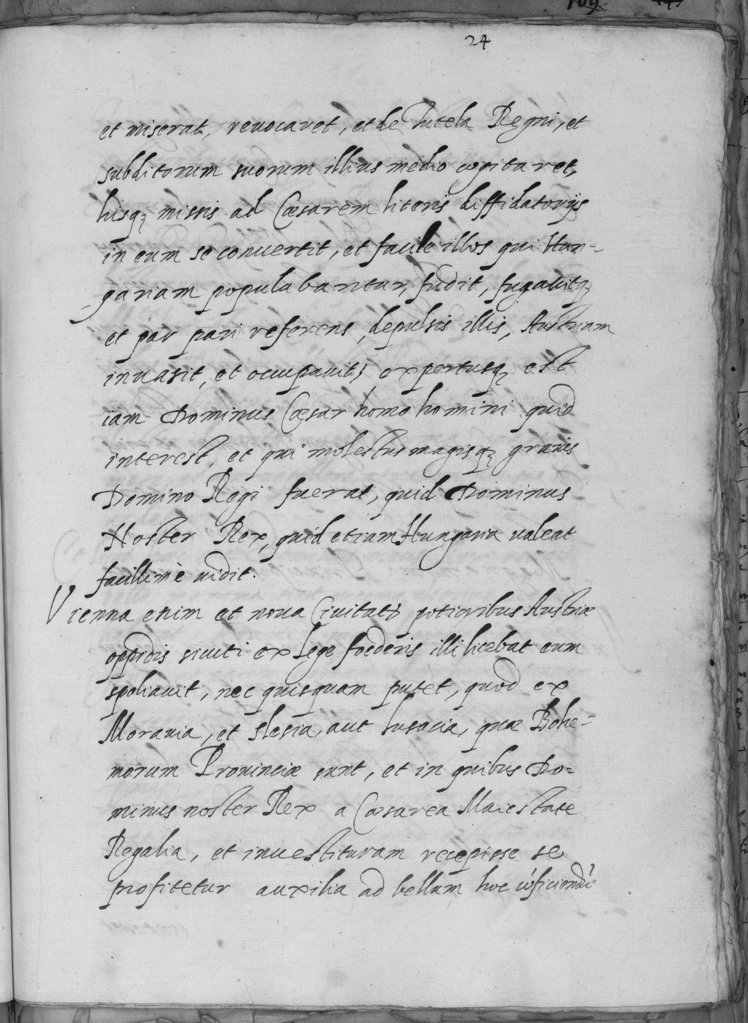 24
et miserat, revocaret, et de tutela Regni, et
subditorum suorum illius medio cogitaret,
missis ad Cæsarem literis diffidatorijs
in eum se convertit, et facile illos qui Hun-
gariam populabantur, fudit, fugavitq;
et par pari referens, depulsis illis, Austriam
invasit, et occupavit; expertusq; est
iam Dominus Cæsar homo homini quid
interest, et qui molestus magisq; gravis
Domino Regi fuerat, quid Dominus
Noster Rex, quid etiam Hungaria valeat
facillimè vidit.
Vienna enim et nova Civitate potioribus Austriæ
oppidis sicuti ex lege foederis illi licebat eum
spoliavit, nec quisquam putet, quod ex
Moravia, et Slesia, aut Lusacia, quæ Bohe-
morum Provinciæ sunt, et in quibus Do-
minus noster Rex a Cæsarea Maiestate
Regalia, et investituram recepisse se
profitetur auxilia ad bellum hoc